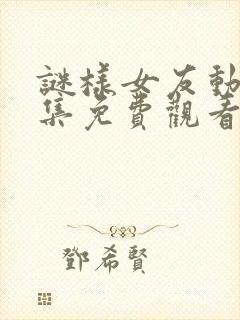 謎樣女友動
集免費觀看
鄧希賢